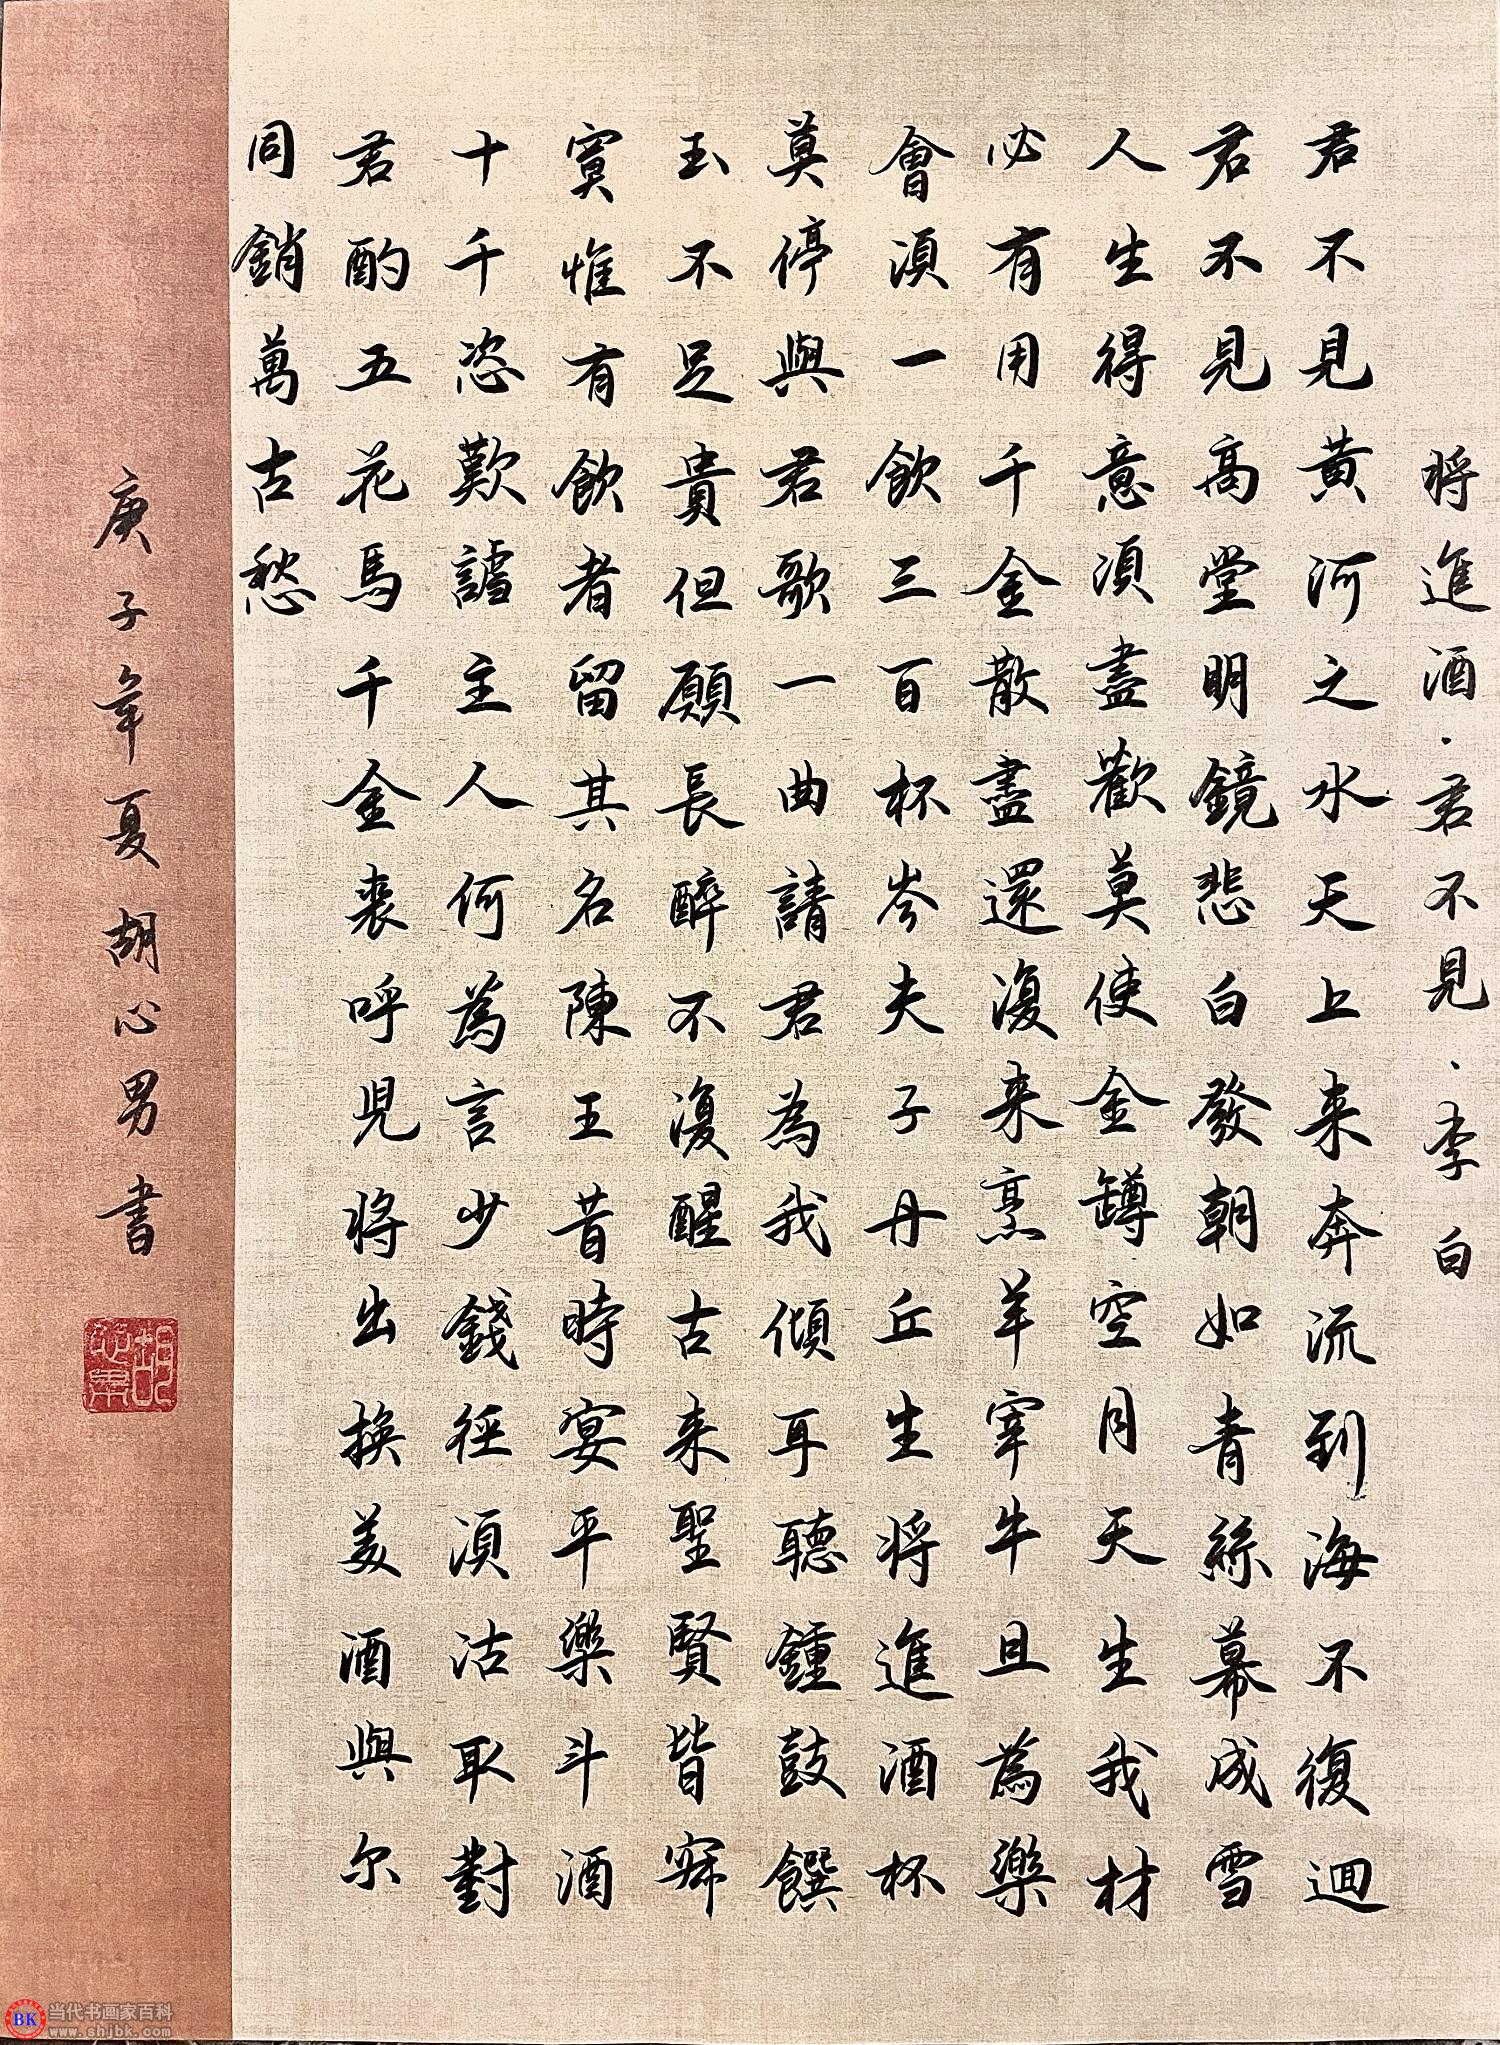 将進酒·君不見、李白
君不見黄河之水天上来奔流到海不復迴
君不見高堂明鏡悲白發朝如青絲暮成雪
人生得意須盡歡莫使金罇空月天生我材
必有用千金散盡還復来烹羊宰牛且為樂
會須一飲三百杯岑夫子丹丘生将進酒杯
莫停與君歌一曲請君為我傾耳聽鍾鼓饌
玉不足貴但願長醉不復醒古来聖賢皆寂
寞惟有飲者留其名陳王昔時宴平樂斗酒
十千恣歡謔主人何為言少錢徑須沽取對
君酌五花馬千金裘呼児将出換美酒與尔
同銷萬古愁
庚子年夏胡心男書
胡心男
BK 当代书画家百科
www.shjbk.com